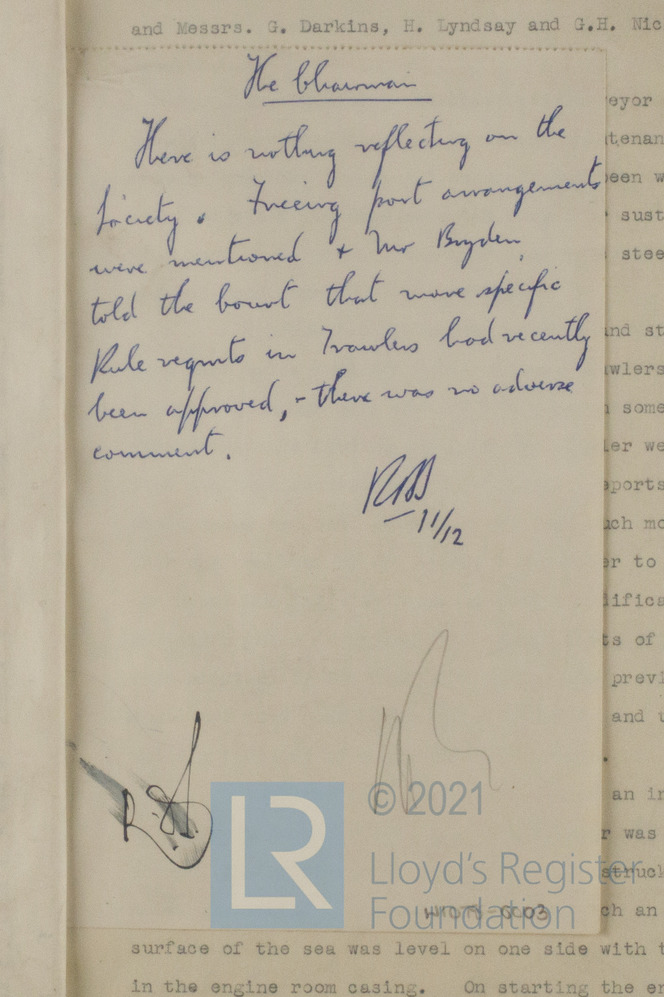 and Messrs. G. Darkins, H. Lyndsay and G.H. Nic
The Chairman
There is nothing reflecting on the
Society. Freeing port arrangements
were mentioned & Mr Bryden
told the court that more specific
Rule reqmts in Trawlers had recently
been approved, - there was no adverse
comment.
11/12
eyor
tenan
been w
sust
stee
and st
awlers
some
ler we
eports
uch mo
er to
difica
ts of
previ
and u
an in
r was
struck
ch an
LR
© 2021
Lloyd's Register
Foundation
surface of the sea was level on one side with t
in the engine room casing. On starting the en